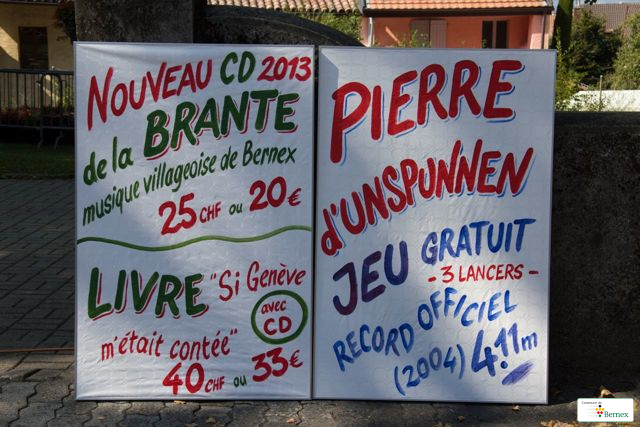 NOUVEAU CD 2013
de la BRANTE
musique villageoise de Bernex
25 CHF ou 20 €
LIVRE "Si Genève
m'était contée"
avec
CD
40 CHF ou 33 €
PIERRE
d'UNSPUNNEN
JEU GRATUIT
- 3 LANCERS -
RECORD OFFICIEL
(2004) 4.11 m
Bernex